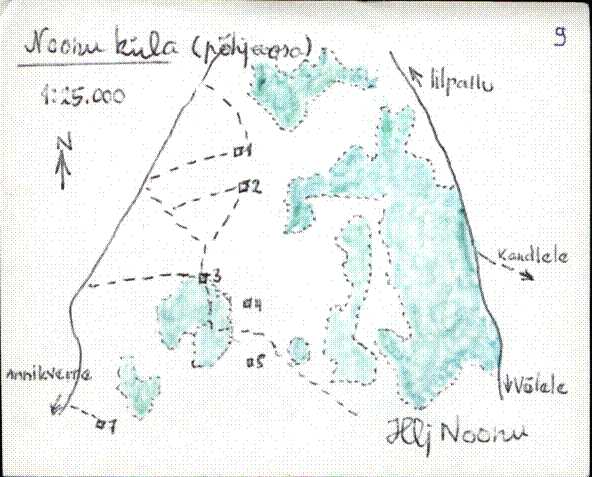 Noonu küla (põhjaosa)
9
1:25.000
N
Ilpallu
1
2
Kandlele
3
4
5
Annikverre
Võlele
7
Hlj Noonu